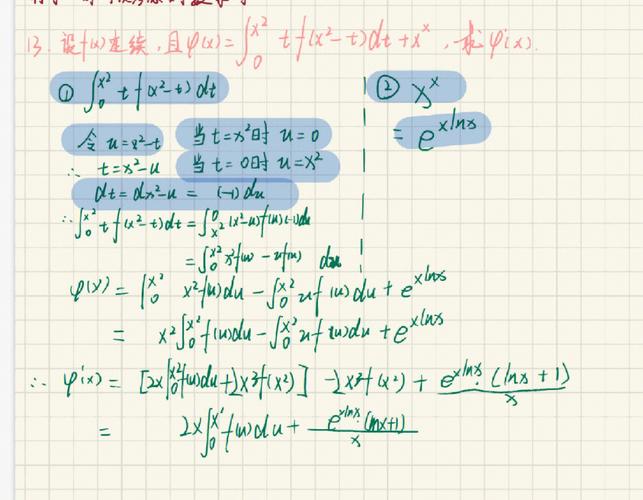 13. 设f(x)连续,且φ(x)=∫₀^{x²} t f(x²-t)dt+x^x,求φ'(x).
① ∫₀^{x²} t f(x²-t) dt
② x^x
令 u=x²-t 当 t=x²时 u=0
= e^{xlnx}
∴ t=x²-u 当 t=0时 u=x²
dt=dx²-u = (-1)du
∴∫₀^{x²} t f(x²-t)dt=∫_{x²}^0 (x²-u)f(u)(-1)du
=∫₀^{x²} x²f(u) - uf(u) du
φ(x)=∫₀^{x²} x²f(u)du-∫₀^{x²} uf(u)du+e^{xlnx}
= x²∫₀^{x²} f(u)du-∫₀^{x²} uf(u)du+e^{xlnx}
∴ φ'(x)= [2x∫₀^{x²}f(u)du+2x³f(x²)] -2x³f(x²)+ e^{xlnx}·(lnx+1)/x
= 2x∫₀^{x²} f(u)du+ e^{xlnx}·(lnx+1)/x